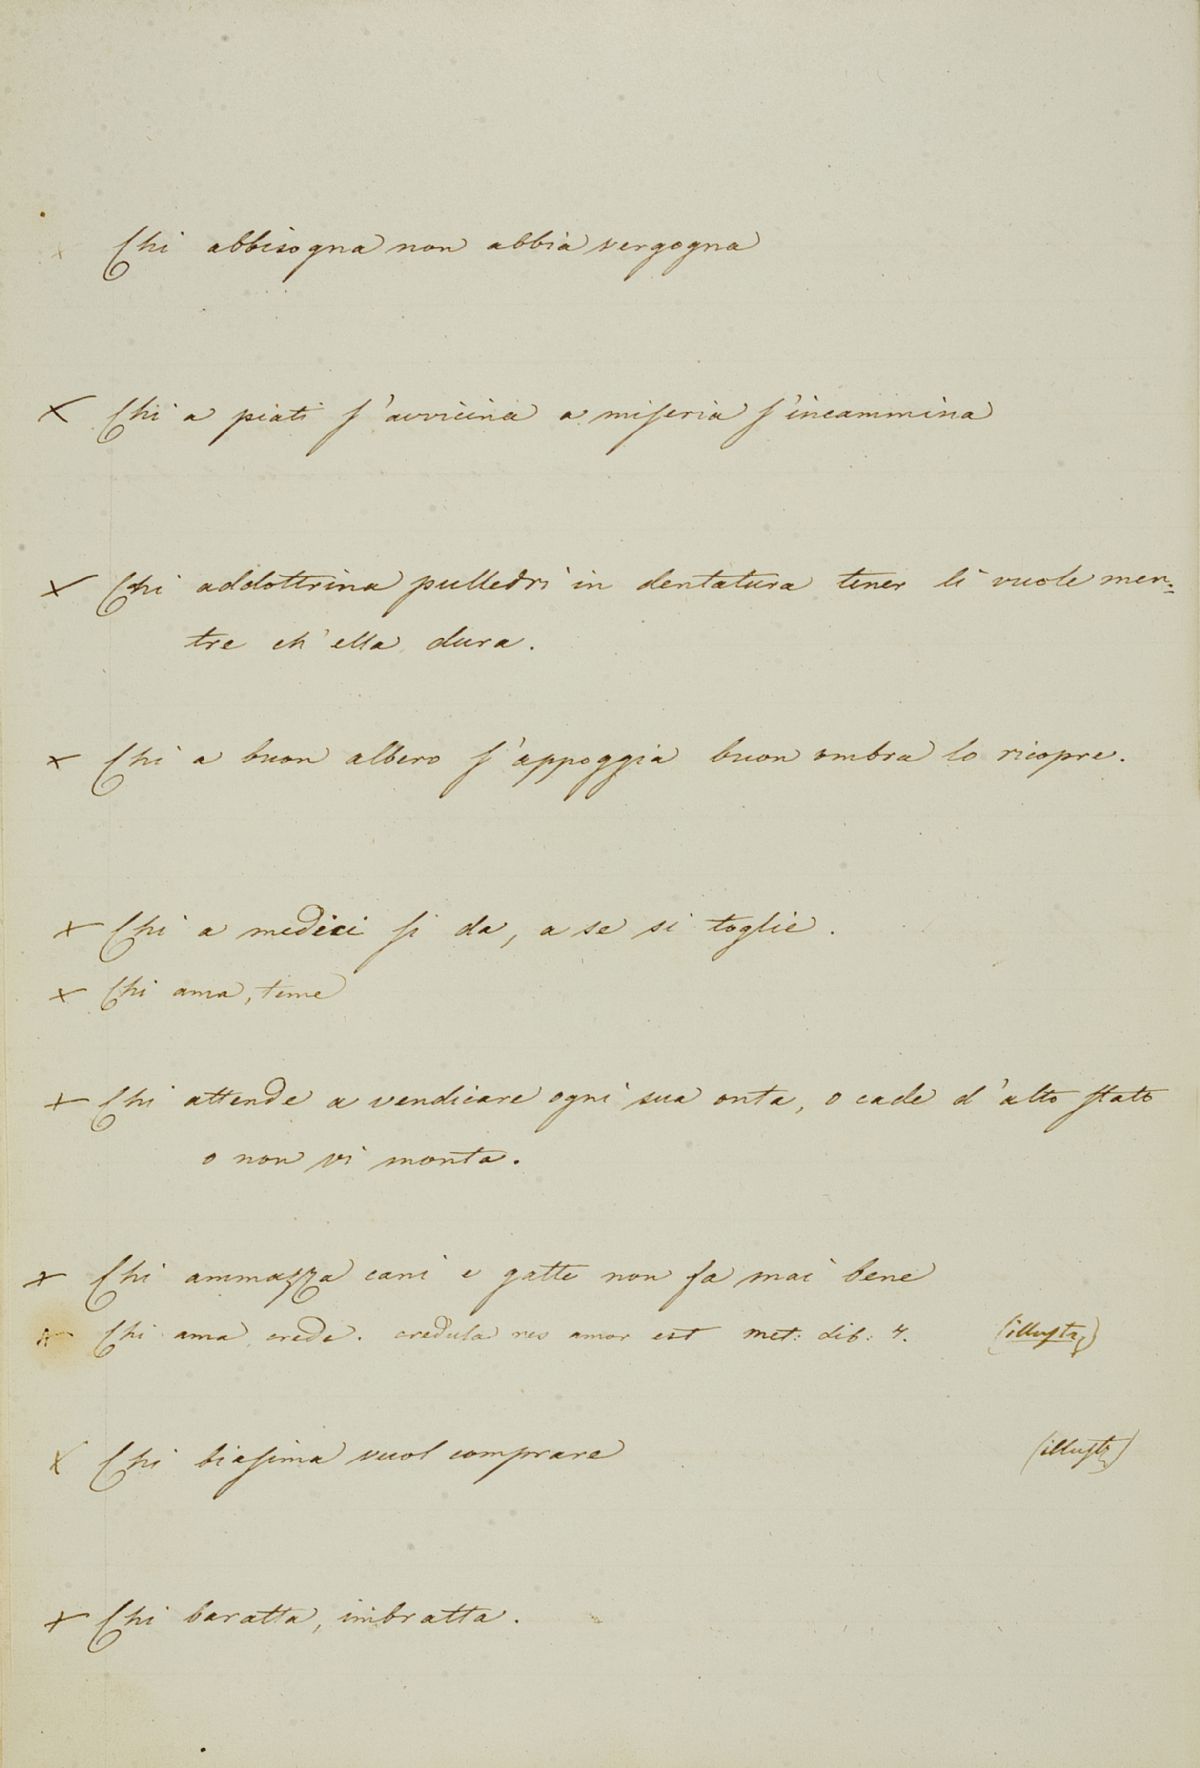 × Chi abbisogna non abbia vergogna
× Chi a piati s'avvicina a miseria s'incammina
× Chi addottrina pulledri in dentatura tener li vuole men=
tre ch'ella dura.
× Chi a buon albero s'appoggia buon ombra lo ricopre.
× Chi a medici si da, a se si toglie.
× Chi ama, teme
× Chi attende a vendicare ogni sua onta, o cade d'alto stato
o non vi monta.
× Chi ammazza cani e gatte non fa mai bene
× Chi ama crede. credula res amor est met: lib: 7. (illustr)
× Chi biasima vuol comprare (illustr)
× Chi baratta, imbratta.